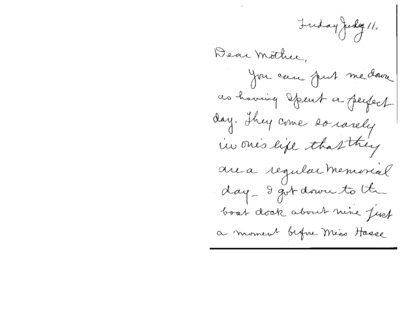 Friday July 11.
Dear Mother,
You can put me down
as having spent a perfect
day. They come so rarely
in one's life that they
are a regular memorial
day - I got down to the
boat dock about nine just
a moment before Miss Hasse